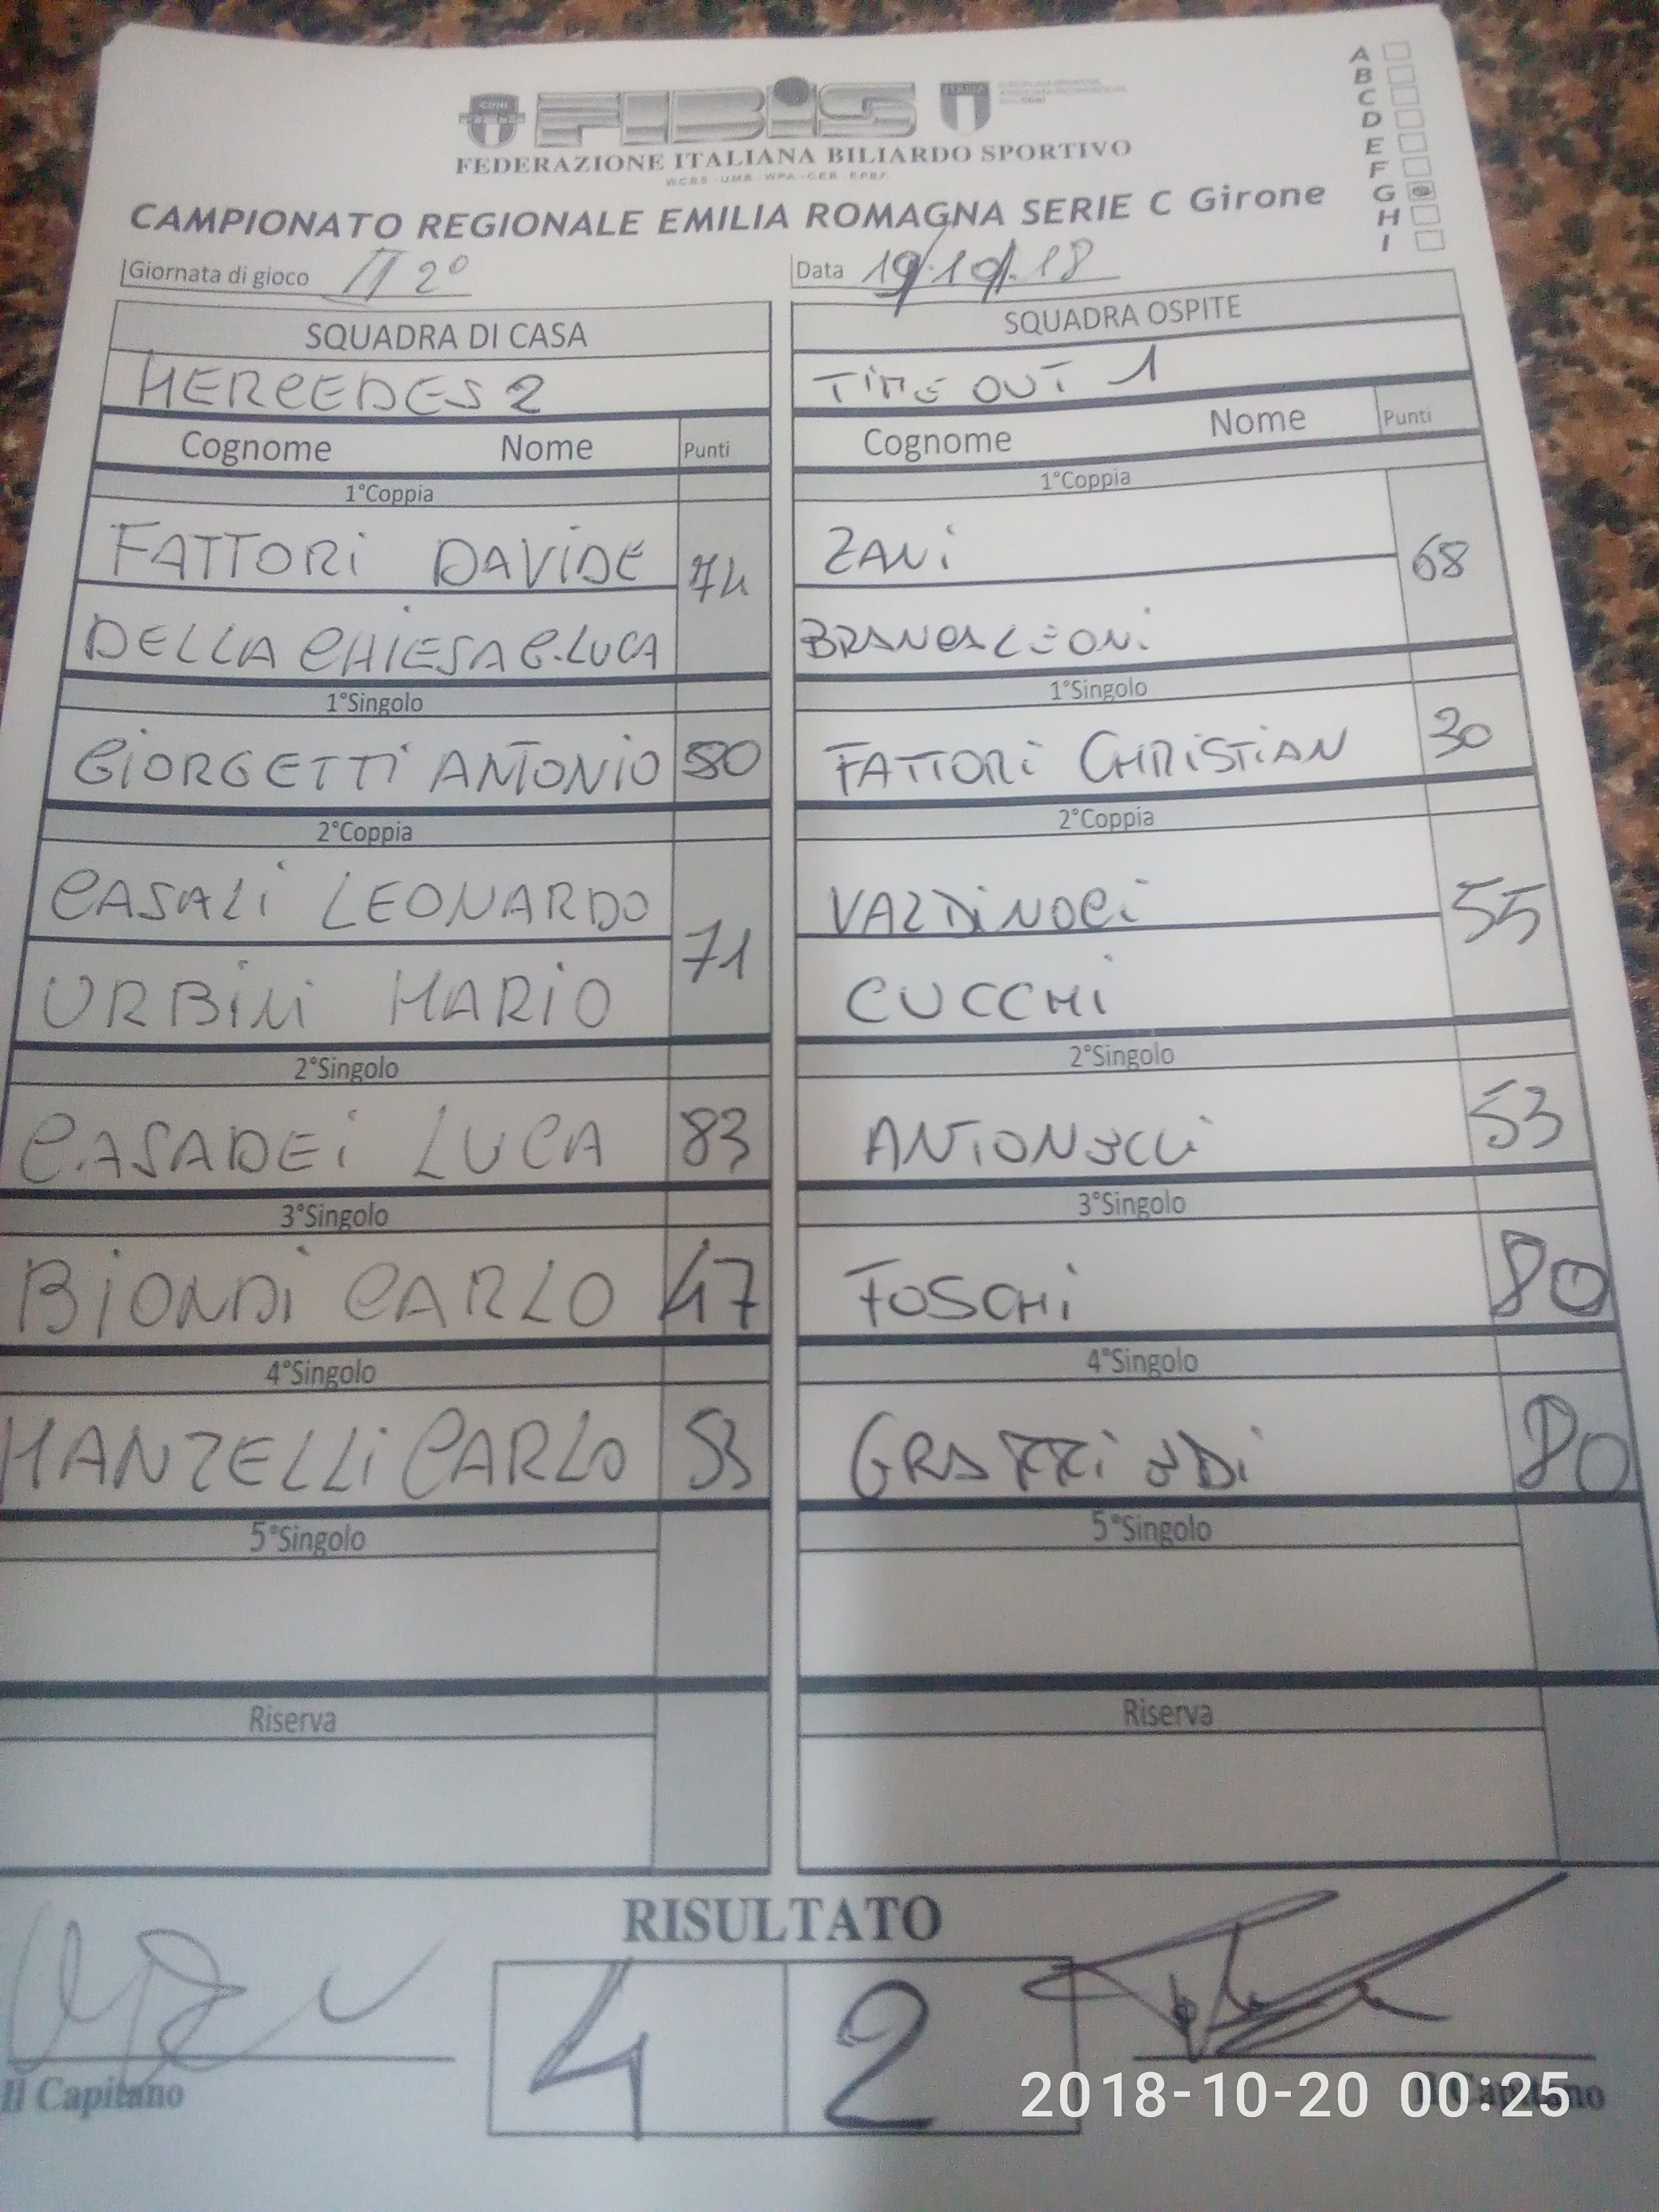 CONI
FIBiS
ITALIA
FEDERAZIONE ITALIANA BILIARDO SPORTIVO
W.C.B.S - U.M.B - W.P.A - C.E.B - E.P.B.F.
CAMPIONATO REGIONALE EMILIA ROMAGNA SERIE C Girone
A
B
C
D
E
F
G
H
I
Giornata di gioco II 2°
Data 19/10/18
SQUADRA DI CASA
SQUADRA OSPITE
MERCEDES 2
TIME OUT 1
Cognome Nome Punti
Cognome Nome Punti
1°Coppia
1°Coppia
FATTORI DAVIDE 74
ZANI 68
DELLA CHIESA G.LUCA
BRANCALEONI
1°Singolo
1°Singolo
GIORGETTI ANTONIO 80
FATTORI CHRISTIAN 30
2°Coppia
2°Coppia
CASALI LEONARDO 71
VALDINOCI 55
URBINI MARIO
CUCCHI
2°Singolo
2°Singolo
CASADEI LUCA 83
ANTONELLI 53
3°Singolo
3°Singolo
BIONDI CARLO 47
FOSCHI 80
4°Singolo
4°Singolo
MANZELLI CARLO 53
80
5°Singolo
5°Singolo
Riserva
Riserva
RISULTATO
4 2
Il Capitano
Il Capitano
2018-10-20 00:25